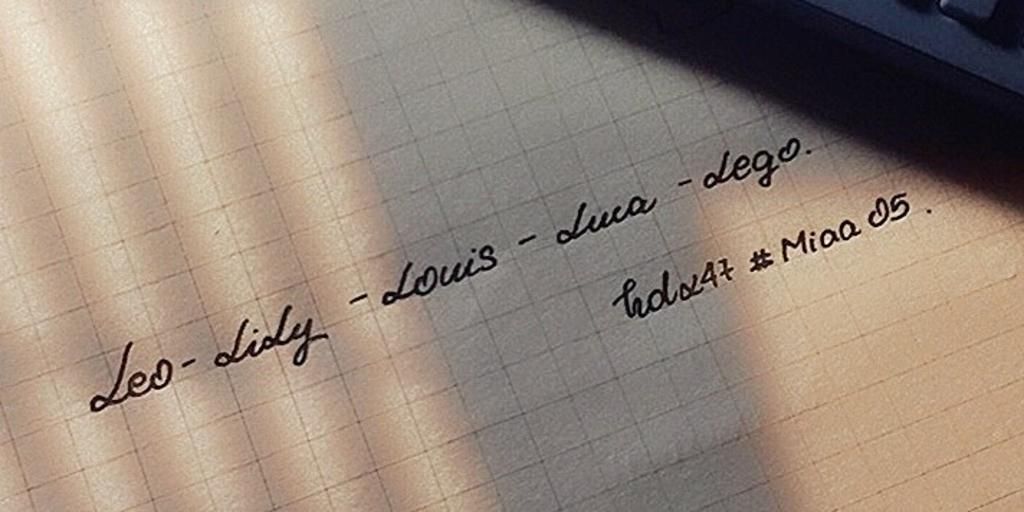 Leo - Lidy - Louis - Luca - Lego.
hdx47 # Miaa 05 .